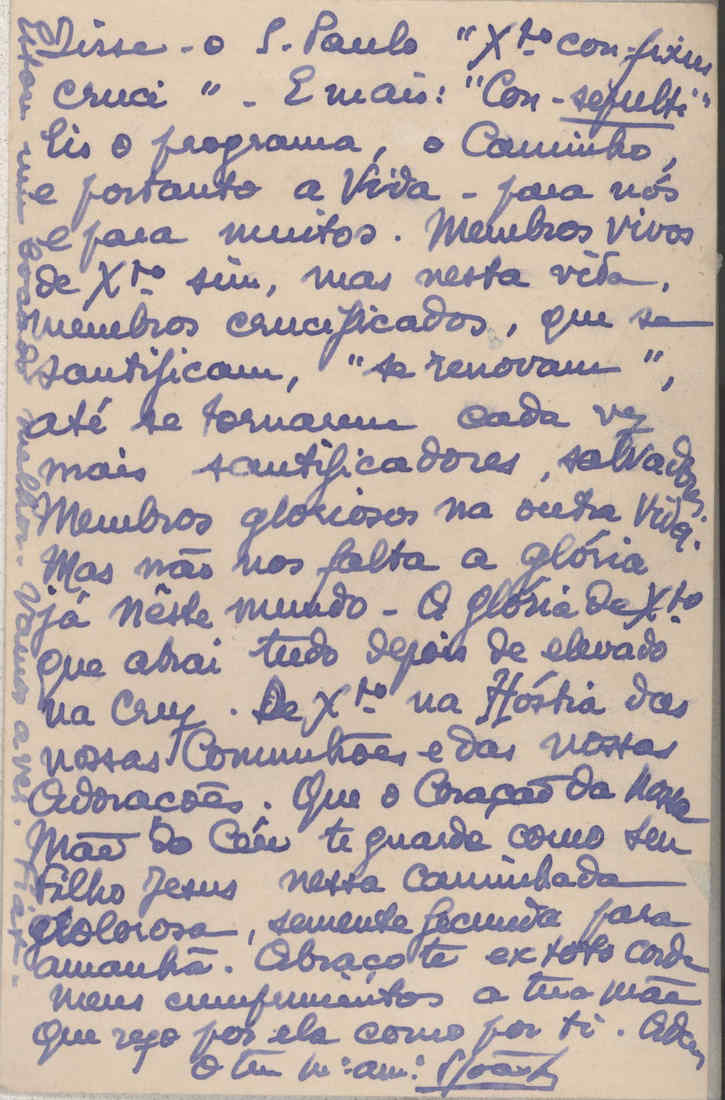 Disse-o S. Paulo "Xto con-fixus
cruci" - E mais: "Con-sepulti"
Eis o programa, o Caminho,
e portanto a Vida - para nós
e para muitos. Membros vivos
de Xto sim, mas nesta vida,
membros crucificados, que se
santificam, "se renovam",
até se tornarem cada vez
mais santificadores, salvadores.
Membros gloriosos na outra Vida.
Mas não nos falta a glória
já nêste mundo - A glória de Xto
que atrai tudo depois de elevado
na Cruz. De Xto na Hóstia das
nossas Comunhões e das nossas
Adorações. Que o Coração da nossa
Mãe do Céu te guarde como seu
Filho Jesus nessa caminhada
dolorosa, semente fecunda para
amanhã. Abraço-te ex toto corde
meus cumprimentos a tua mãe
que rezo por ela como por ti. Adeus
O teu m: am:
Estou um bocado melhor - Vamos a ver. Fiat -